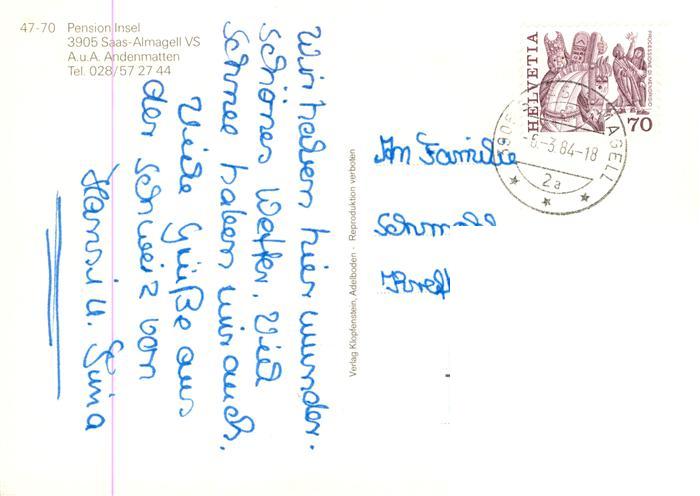 47-70 Pension Insel
3905 Saas-Almagell VS
A.u.A. Andenmatten
Tel. 028/57 27 44
Wir haben hier wunder-
schönes Wetter. Viel
Schnee haben wir auch.
Viele Grüße aus
der Schweiz von
Hansi u.
Verlag Klopfenstein, Adelboden - Reproduktion verboten
HELVETIA
PROCESSIONE DI MENDRISIO
70
3905 AGELL
-6.-3.84-18
2a
An Familie